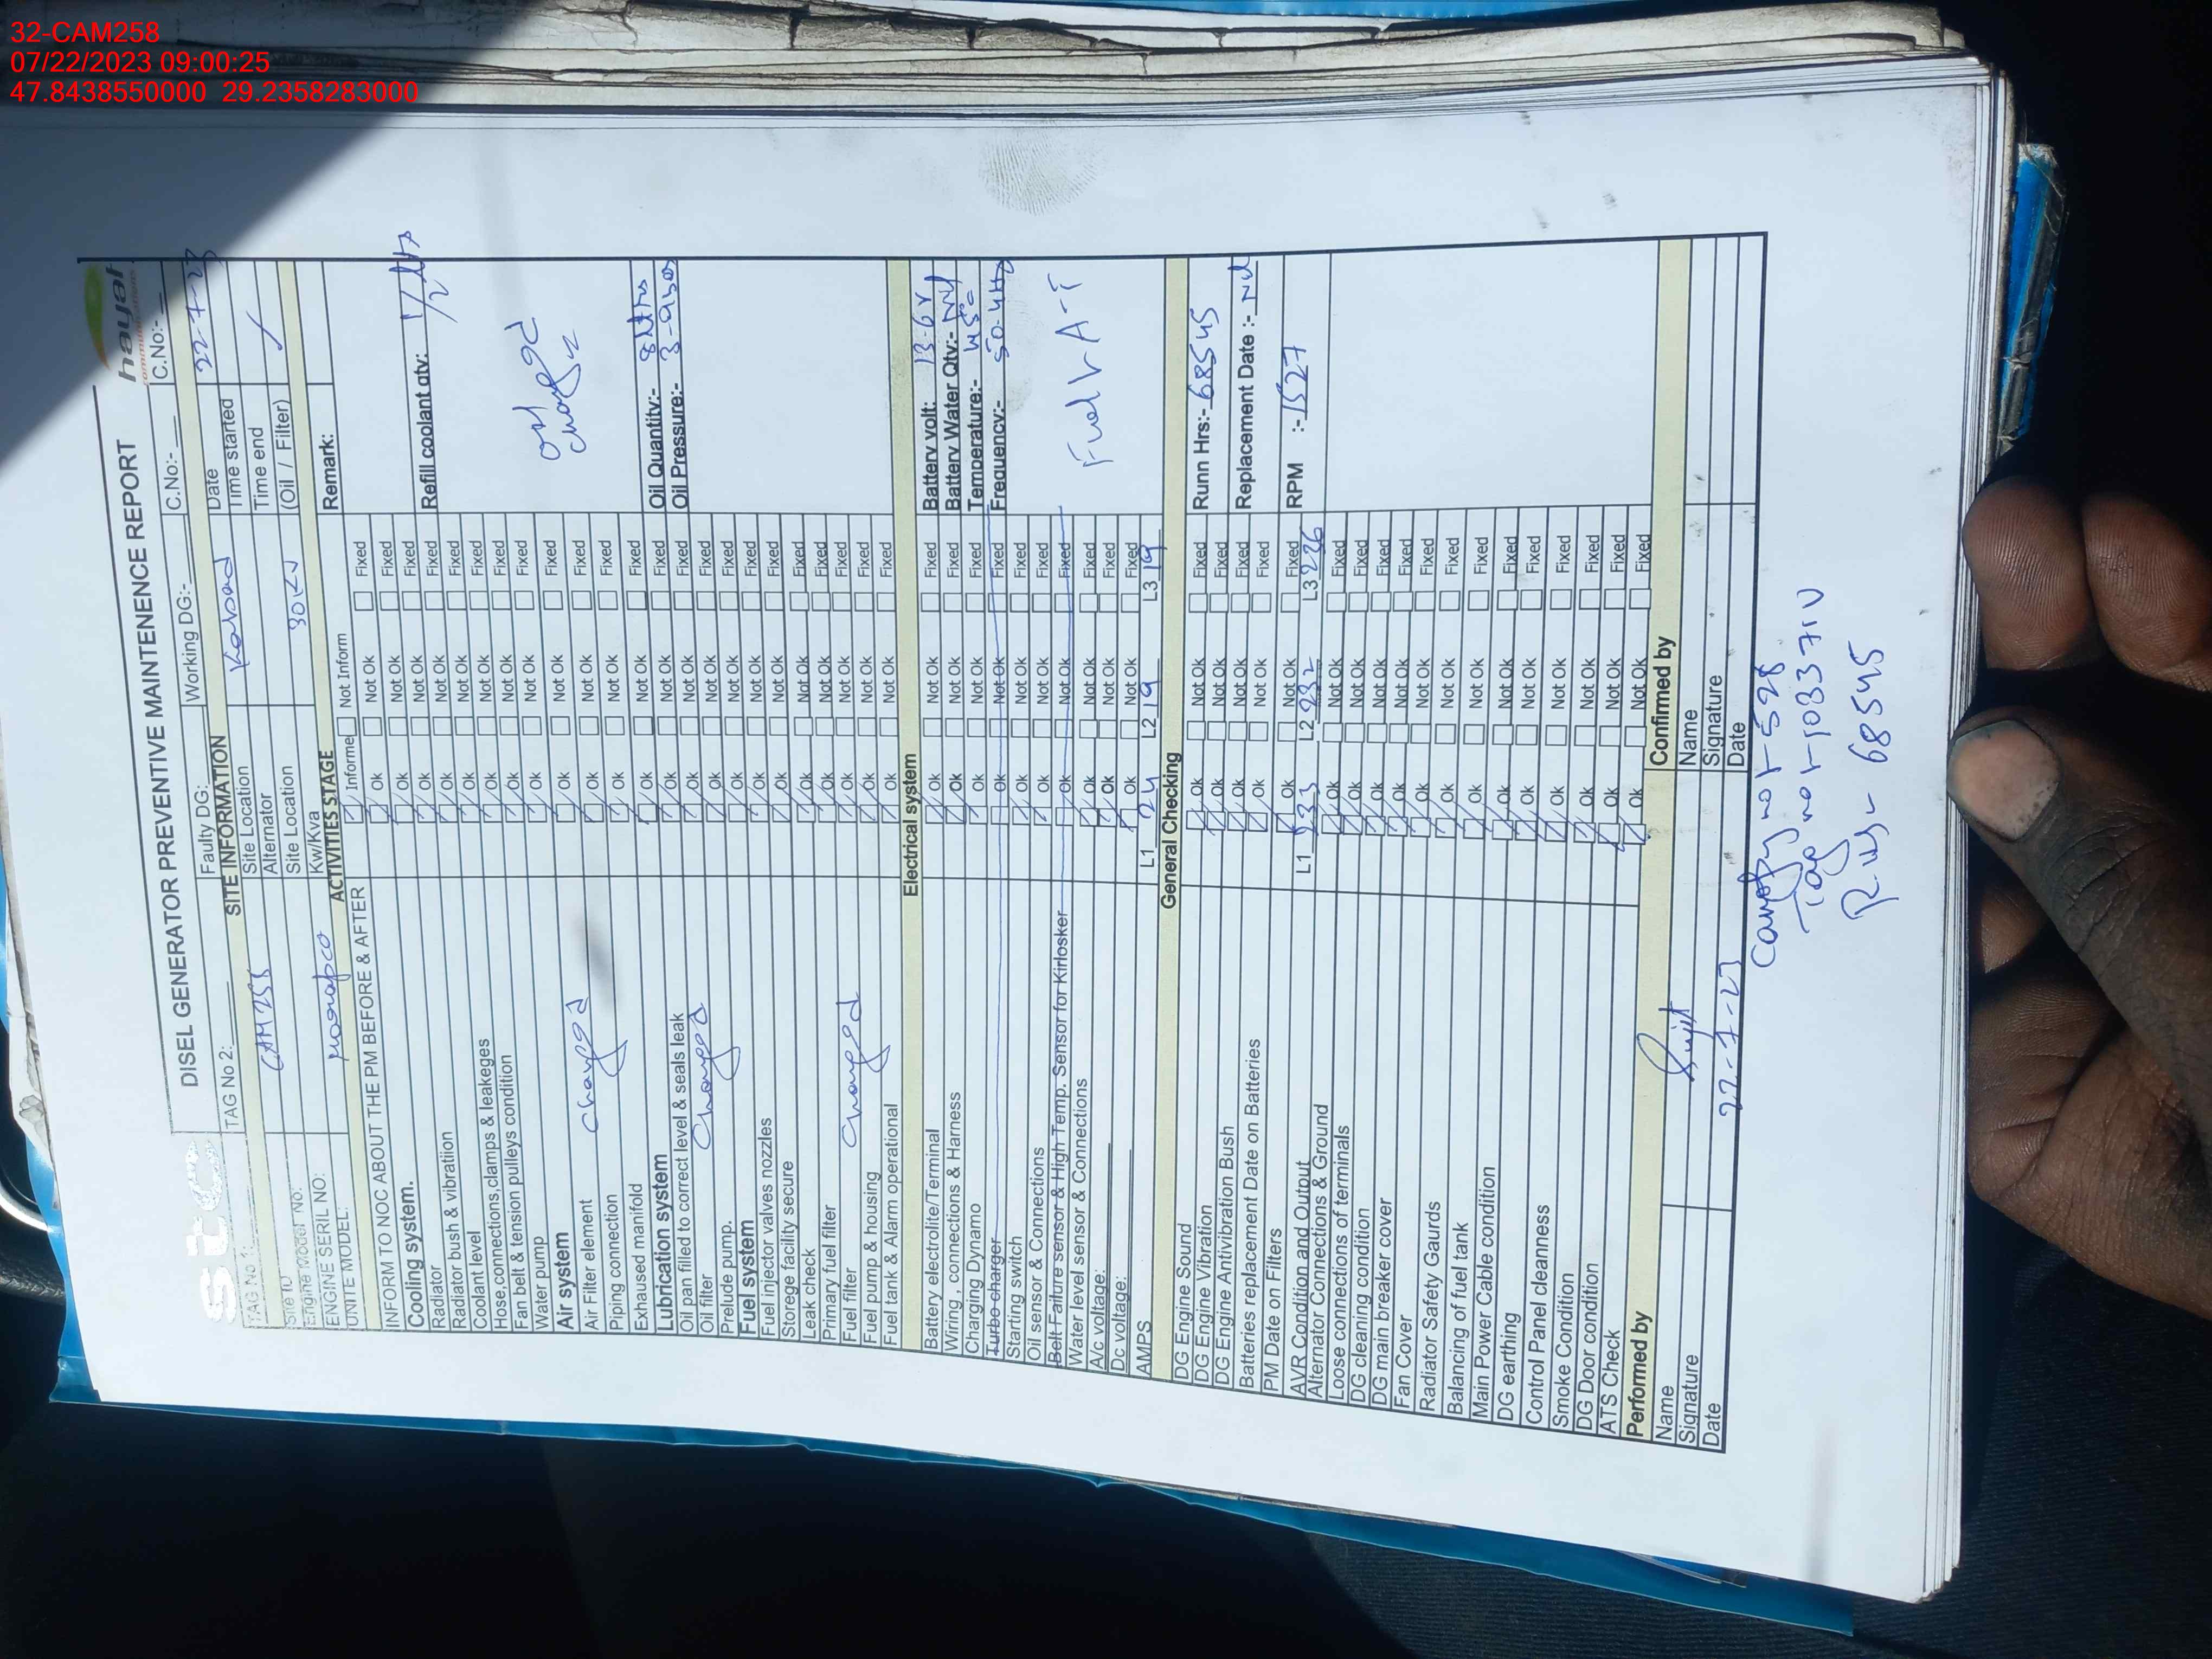 32-CAM258
07/22/2023 09:00:25
47.8438550000 29.2358283000
stc
hayat
communications
DISEL GENERATOR PREVENTIVE MAINTENENCE REPORT
C.No:- C.No:-
TAG No 1: TAG No 2: Faulty DG: Working DG:-
SITE INFORMATION Date 22-7-23
Site ID Site Location Kabsad Time started
Engine Model No: Alternator Time end
ENGINE SERIL NO: Site Location (Oil / Filter)
UNITE MODEL: Kw/Kva
ACTIVITIES STAGE Remark:
INFORM TO NOC ABOUT THE PM BEFORE & AFTER Informe Not Inform
Cooling system. Ok Not Ok Fixed
Radiator Ok Not Ok Fixed Refill coolant qty: 1/2 ltrs
Radiator bush & vibratiion Ok Not Ok Fixed
Coolant level Ok Not Ok Fixed
Hose,connections,clamps & leakeges Ok Not Ok Fixed
Fan belt & tension pulleys condition Ok Not Ok Fixed
Water pump Ok Not Ok Fixed
Air system Ok Not Ok Fixed
Air Filter element changed Ok Not Ok Fixed
Piping connection Ok Not Ok Fixed
Exhaused manifold Ok Not Ok Fixed
Lubrication system Ok Not Ok Fixed Oil Quantity:- 8 ltrs
Oil pan filled to correct level & seals leak Ok Not Ok Fixed Oil Pressure:-
Oil filter Changed Ok Not Ok Fixed
Prelude pump. Ok Not Ok Fixed
Fuel system Ok Not Ok Fixed
Fuel injector valves nozzles Ok Not Ok Fixed
Storege facility secure Ok Not Ok Fixed
Leak check Ok Not Ok Fixed
Primary fuel filter Ok Not Ok Fixed
Fuel filter Changed Ok Not Ok Fixed
Fuel pump & housing Ok Not Ok Fixed
Fuel tank & Alarm operational Ok Not Ok Fixed
Electrical system
Battery electrolite/Terminal Ok Not Ok Fixed Battery volt: 13.6V
Wiring , connections & Harness Ok Not Ok Fixed Battery Water Qty:- Nil
Charging Dynamo Ok Not Ok Fixed Temperature:- 45°
Turbo charger Ok Not Ok Fixed Frequency:- 50.4Hz
Starting switch Ok Not Ok Fixed
Oil sensor & Connections Ok Not Ok Fixed
Belt Failure sensor & High Temp. Sensor for Kirlosker Ok Not Ok Fixed
Water level sensor & Connections Ok Not Ok Fixed
A/c voltage: Ok Not Ok Fixed
Dc voltage: Ok Not Ok Fixed
AMPS L1 24 L2 19 L3 19
General Checking
DG Engine Sound Ok Not Ok Fixed Runn Hrs:- 68545
DG Engine Vibration Ok Not Ok Fixed
DG Engine Antivibration Bush Ok Not Ok Fixed Replacement Date :- Nil
Batteries replacement Date on Batteries Ok Not Ok Fixed
PM Date on Filters Ok Not Ok Fixed RPM :- 1527
AVR Condition and Output L1 233 L2 232 L3 236
Alternator Connections & Ground Ok Not Ok Fixed
Loose connections of terminals Ok Not Ok Fixed
DG cleaning condition Ok Not Ok Fixed
DG main breaker cover Ok Not Ok Fixed
Fan Cover Ok Not Ok Fixed
Radiator Safety Gaurds Ok Not Ok Fixed
Balancing of fuel tank Ok Not Ok Fixed
Main Power Cable condition Ok Not Ok Fixed
DG earthing Ok Not Ok Fixed
Control Panel cleanness Ok Not Ok Fixed
Smoke Condition Ok Not Ok Fixed
DG Door condition Ok Not Ok Fixed
ATS Check Ok Not Ok Fixed
Performed by Confirmed by
Name Name
Signature Sujit Signature
Date 22-7-23 Date
68545